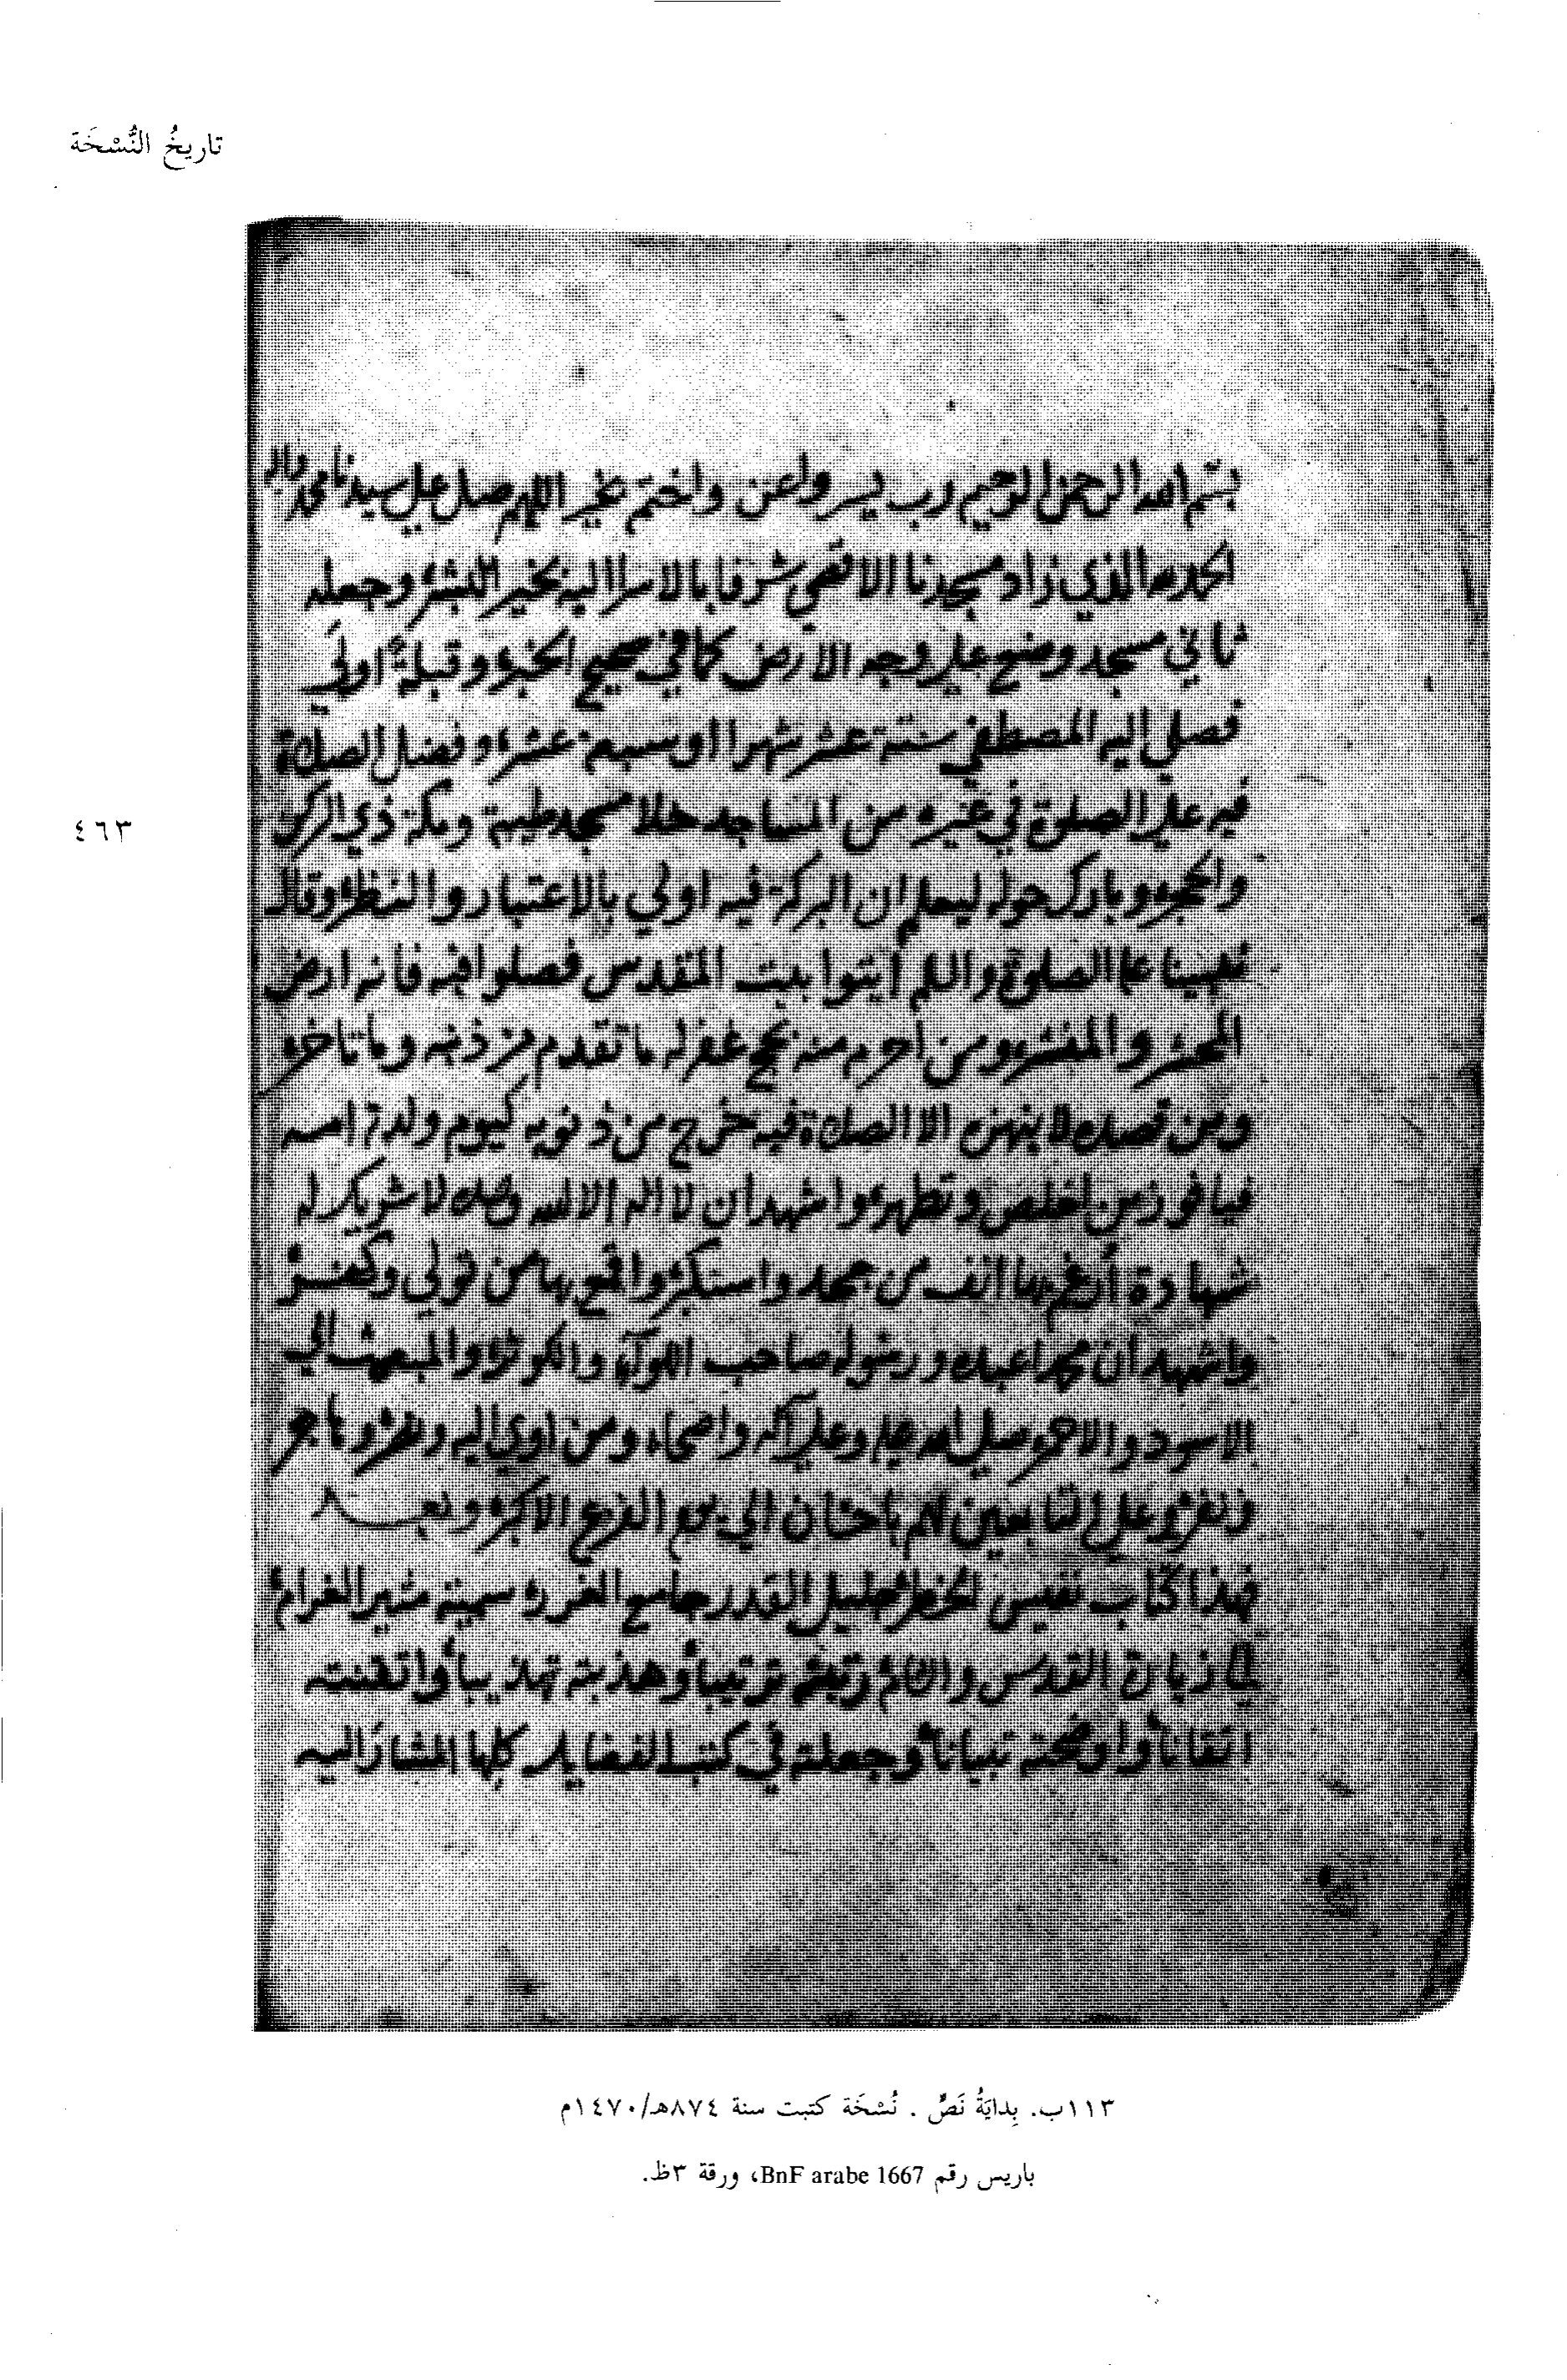 تاريخُ النُّسْخَة
بسم الله الرحمن الرحيم رب يسر واعن واختم بخير اللهم صل على سيدنا محمد واله
الحمد لله الذي زاد مسجدنا الاقصى شرفا بالاسرا اليه بخير البشر وجعله
ثاني مسجد وضع على وجه الارض كما في صحيح الخبر وقبلة اولى
فصلى اليه المصطفى ستة عشر شهرا او سبعة عشر وفضل الصلاة
فيه على الصلوة في غيره من المساجد خلا مسجد طيبة ومكة ذي الركن
والحجر وبارك حوله ليعلم ان البركة فيه اولى بالاعتبار والنظر وقال
نبينا عليه الصلوة والسلام ايتوا بيت المقدس فصلوا فيه فانه ارض
المحشر والمنشر ومن احرم منه بحج غفر له ما تقدم من ذنبه وما تاخر
ومن قصده لا ينهزه الا الصلاة فيه خرج من ذنوبه كيوم ولدته امه
فيا فوز من اخلص وتطهر واشهد ان لا اله الا الله وحده لا شريك له
شهادة أرغم بها انف من جحد واستكبر واقمع بها من تولى وكفر
واشهد ان محمدا عبده ورسوله صاحب اللوآء والكوثر والمبعوث الى
الاسود والاحمر صلى الله عليه وعلى آله واصحابه ومن اوى اليه ونصر وهاجر
ونفر وعلى التابعين لهم باحسان الى يوم الفزع الاكبر وبعد
فهذا كتاب نفيس الخطر جليل القدر جامع الغرر سميته مثير الغرام
الى زيارة القدس والشام رتبته ترتيباً وهذبته تهذيباً واتقنته
اتقاناً واوضحته تبياناً وجعلته في كتب الفضايل كلها المشار اليه
٤٦٣
١١٣ب. بِدايَةُ نَصٍّ . نُسْخَة كتبت سنة ٨٧٤هـ/١٤٧٠م
باريس رقم BnF arabe 1667، ورقة ٣ظ.